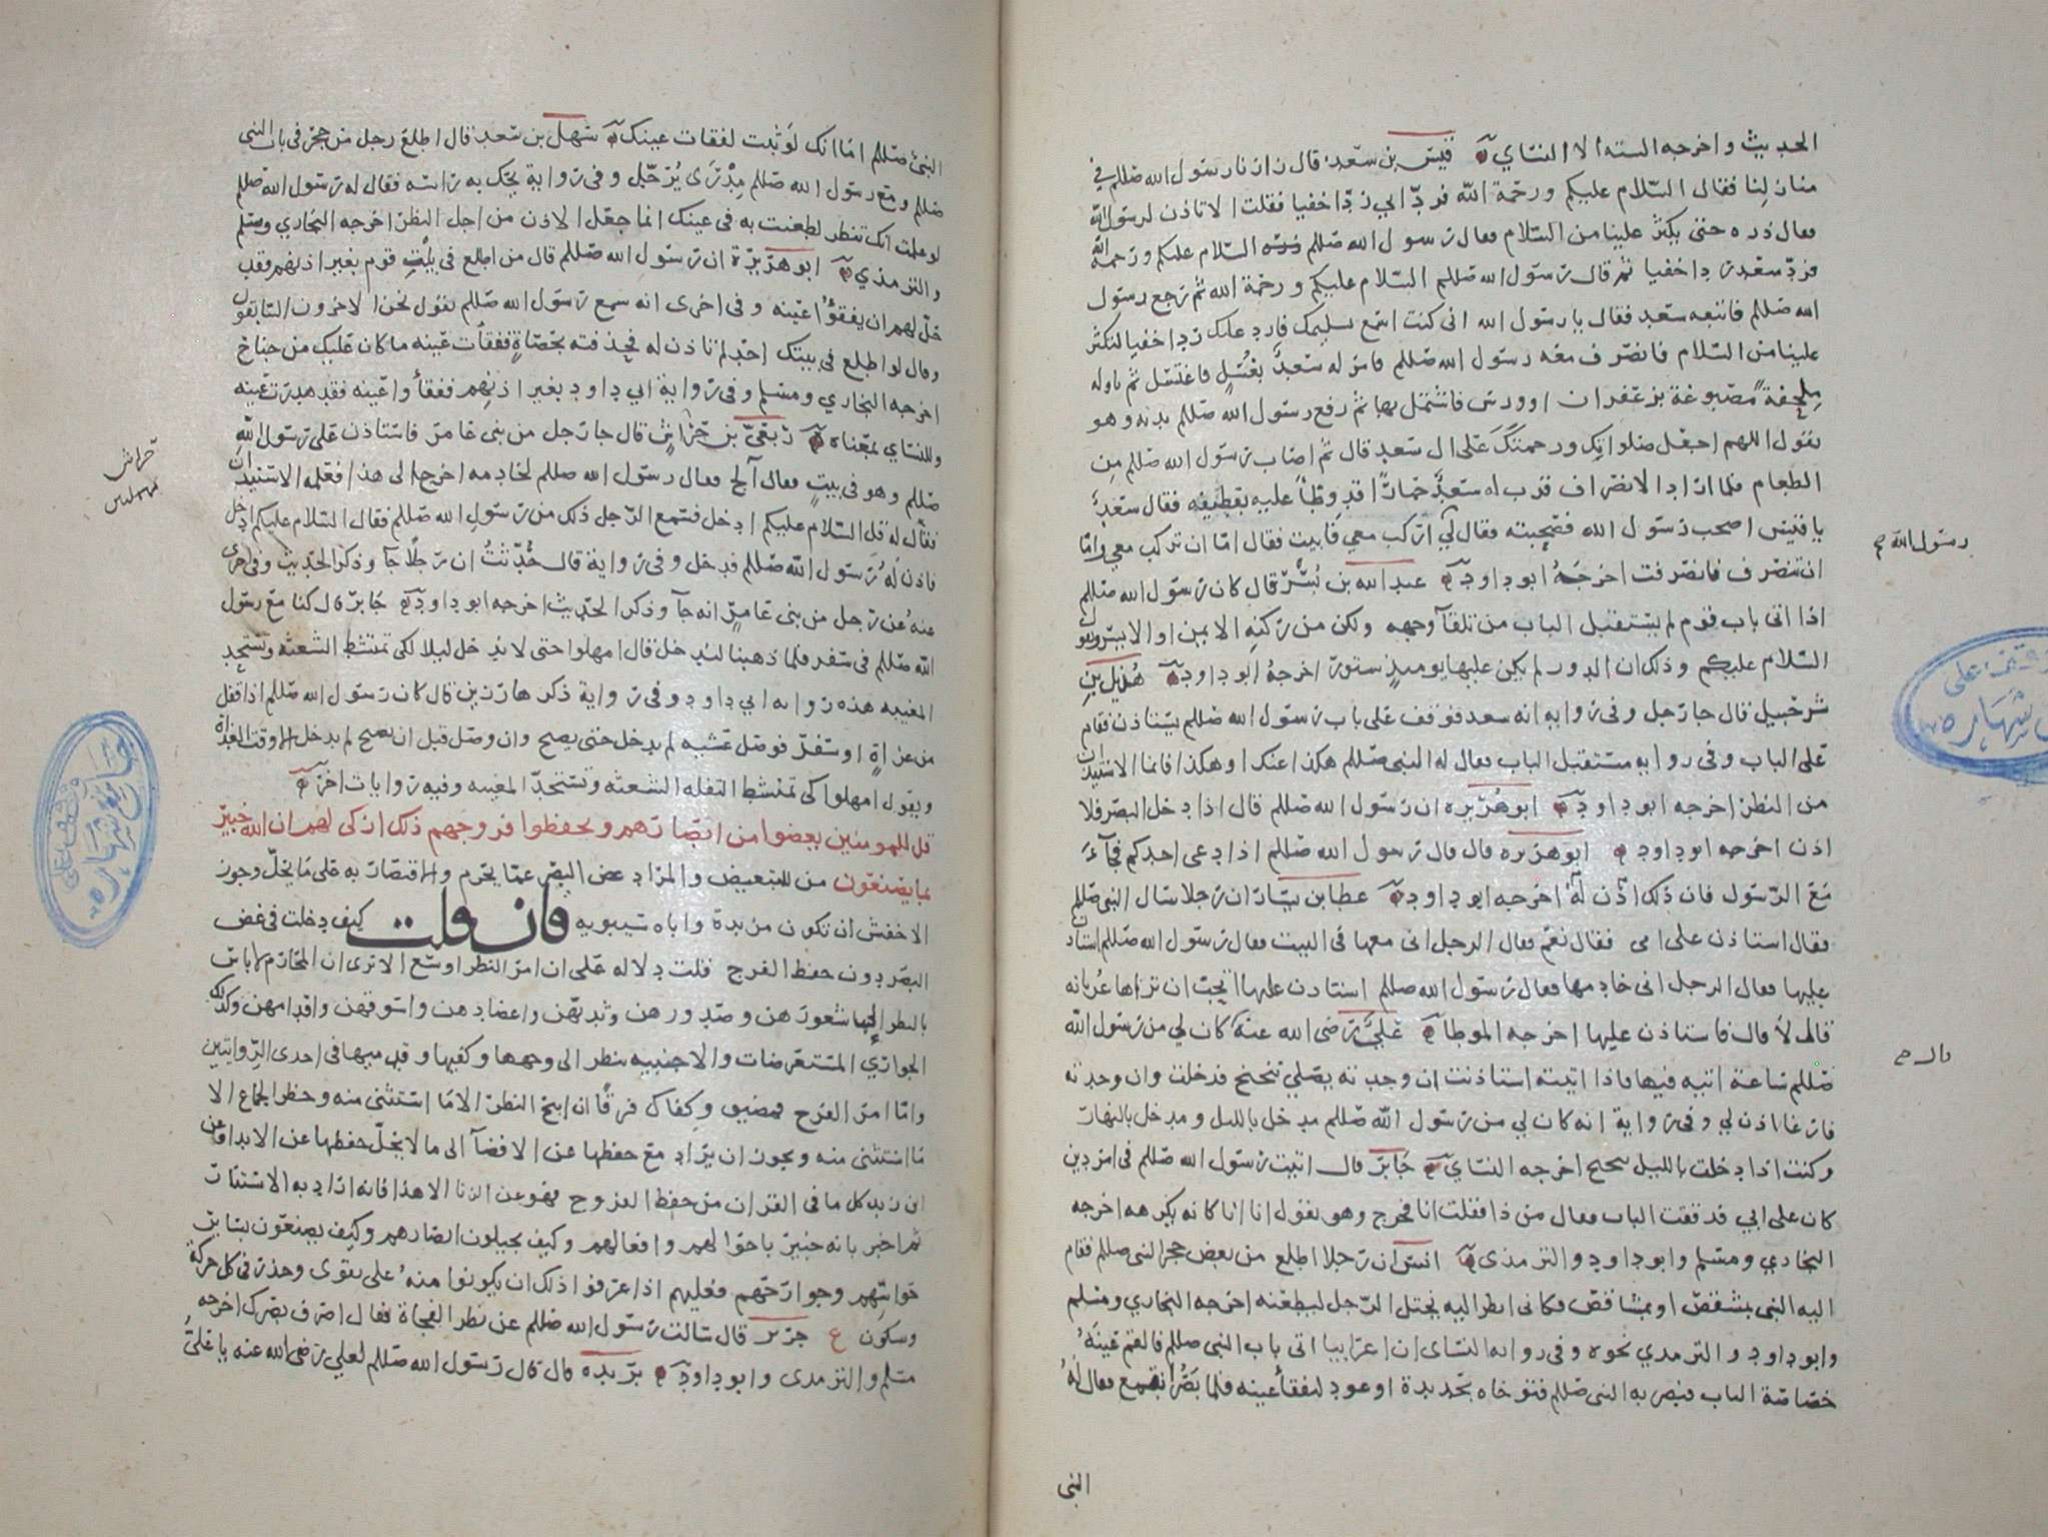 الحديث واخرجه الستة الا النساي قيس بن سعد قال زارنا رسول الله صللم في
منازلنا فقال السلام عليكم ورحمة الله فرد ابي ردا خفيا فقلت الا تاذن لرسول الله
فقال ذره حتى يكثر علينا من السلام فقال رسول الله صللم السلام عليكم ورحمة الله
فرد سعد ردا خفيا ثم قال رسول الله صللم السلام عليكم ورحمة الله ثم رجع رسول
الله صللم فاتبعه سعد فقال يا رسول الله اني كنت اسمع تسليمك فارد عليك ردا خفيا لتكثر
علينا من السلام فانصرف معه رسول الله صللم فامر له سعد بغسل فاغتسل ثم ناوله
ملحفة مصبوغة بزعفران او ورس فاشتمل بها ثم رفع رسول الله صللم يديه وهو
يقول اللهم اجعل صلواتك ورحمتك على ال سعد قال ثم اصاب رسول الله صللم من
الطعام فلما اراد الانصراف قرب له سعد حمارا قد وطا عليه بقطيفة فقال سعد
يا قيس اصحب رسول الله فصحبته فقال لي اركب معي فابيت فقال اما ان تركب معي واما
ان تنصرف فانصرفت اخرجه ابو داود عبد الله بن بسر قال كان رسول الله صللم
اذا اتى باب قوم لم يستقبل الباب من تلقآ وجهه ولكن من ركنه الايمن او الايسر ويقول
السلام عليكم وذلك ان الدور لم يكن عليها يوميذ ستور اخرجه ابو داود هزيل بن
شرحبيل قال جا رجل وفي رواية انه سعد فوقف على باب رسول الله صللم يستاذن فقام
على الباب وفي رواية مستقبل الباب فقال له النبي صللم هكذا عنك او هكذا فانما الاستيذان
من النظر اخرجه ابو داود ابو هريرة ان رسول الله صللم قال اذا دخل البصر فلا
اذن اخرجه ابو داود ابو هريرة قال قال رسول الله صللم اذا دعي احدكم فجآء
مع الرسول فان ذلك اذن له اخرجه ابو داود عطا بن يسار ان رجلا سال النبي صللم
فقال استاذن على امي فقال نعم فقال الرجل اني معها في البيت فقال رسول الله صللم استاذن
عليها فقال الرجل اني خادمها فقال رسول الله صللم استاذن عليها اتحب ان تراها عريانة
قال لا قال فاستاذن عليها اخرجه الموطا علي رضي الله عنه كان لي من رسول الله
صللم ساعة اتيه فيها فاذا اتيته استاذنت ان وجدته يصلي تنحنح فدخلت وان وجدته
فارغا اذن لي وفي رواية انه كان لي من رسول الله صللم مدخل بالليل ومدخل بالنهار
وكنت اذا دخلت بالليل تنحنح اخرجه النساي جابر قال اتيت رسول الله صللم في امر دين
كان على ابي فدققت الباب فقال من ذا فقلت انا فخرج وهو يقول انا انا كانه يكرهه اخرجه
البخاري ومسلم وابو داود والترمذي انس ان رجلا اطلع من بعض حجر النبي صللم فقام
اليه النبي بمشقص او بمشاقص فكاني انظر اليه يختل الرجل ليطعنه اخرجه البخاري ومسلم
وابو داود والترمذي نحوه وفي رواية النساي ان اعرابيا اتى باب النبي صللم فالقم عينه
خصاصة الباب فبصر به النبي صللم فتوخاه بحديدة او عود ليفقأ عينه فلما بصر انقمع فقال له
النبي
رسول الله ص
قال ص
النبي صللم اما انك لو ثبت لفقات عينك سهل بن سعد قال اطلع رجل من جحر في باب النبي
صللم ومع رسول الله صللم مدرى يرجل وفي رواية يحك به راسه فقال له رسول الله صللم
لو علمت انك تنظر لطعنت به في عينك انما جعل الاذن من اجل النظر اخرجه البخاري ومسلم
والترمذي ابو هريرة ان رسول الله صللم قال من اطلع في بيت قوم بغير اذنهم فقد
حل لهم ان يفقؤا عينه وفي اخرى انه سمع رسول الله صللم يقول نحن الاخرون السابقون
وقال لو اطلع في بيتك احد لم تاذن له فخذفته بحصاة ففقات عينه ما كان عليك من جناح
اخرجه البخاري ومسلم وفي رواية ابي داود بغير اذنهم ففقأوا عينه فقد هدرت عينه
وللنساي بمعناه ربعي بن حراش قال جا رجل من بني عامر فاستاذن على رسول الله
صللم وهو في بيت فقال أألج فقال رسول الله صللم لخادمه اخرج الى هذا فعلمه الاستيذان
فقال له قل السلام عليكم ادخل فسمع الرجل ذلك من رسول الله صللم فقال السلام عليكم ادخل
فاذن له رسول الله صللم فدخل وفي رواية قال حدثت ان رجلا جآ وذكر الحديث وفي اخرى
عنه عن رجل من بني عامر انه جآ وذكر الحديث اخرجه ابو داود جابر قال كنا مع رسول
الله صللم في سفر فلما ذهبنا لندخل قال امهلوا حتى لا ندخل ليلا لكي تمتشط الشعثة وتستحد
المغيبة هذه رواية ابي داود وفي رواية ذكرها رزين قال كان رسول الله صللم اذا قفل
من غزاة او سفر فوصل عشية لم يدخل حتى يصبح وان وصل قبل ان يصبح لم يدخل الا وقت الغداة
ويقول امهلوا كي تمتشط التفلة الشعثة وتستحد المغيبة وفيه روايات اخر
قل للمومنين يغضوا من ابصارهم ويحفظوا فروجهم ذلك ازكى لهم ان الله خبير
بما يصنعون من للتبعيض والمراد غض البصر عما يحرم والاقتصار به على ما يحل وجوز
الاخفش ان تكون مزيدة واباه سيبويه فان قلت كيف دخلت في غض
البصر دون حفظ الفرج قلت دلالة على ان امر النظر اوسع الا ترى ان المحارم لا باس
بالنظر الى شعورهن وصدورهن وثديهن واعضادهن واسوقهن واقدامهن وكذلك
الجواري المستعرضات والاجنبية ينظر الى وجهها وكفيها وقدميها في احدى الروايتين
واما امر الفرج فمضيق وكفاك فرقا ان ابيح النظر الا ما استثني منه وحظر الجماع الا
ما استثني منه ويجوز ان يراد مع حفظها عن الافضآ الى ما لا يحل حفظها عن الابدا وعن
ابن زيد كل ما في القران من حفظ الفروج فهو عن الزنا الا هذا فانه اراد به الاستتار
ثم اخبر بانه خبير باحوالهم وافعالهم وكيف يجيلون ابصارهم وكيف يصنعون بساير
حواسهم وجوارحهم فعليهم اذا عرفوا ذلك ان يكونوا منه على تقوى وحذر في كل حركة
وسكون ع جرير قال سالت رسول الله صللم عن نظر الفجاة فقال اصرف بصرك اخرجه
مسلم والترمذي وابو داود بريدة قال قال رسول الله صللم لعلي رضي الله عنه يا علي
حراش